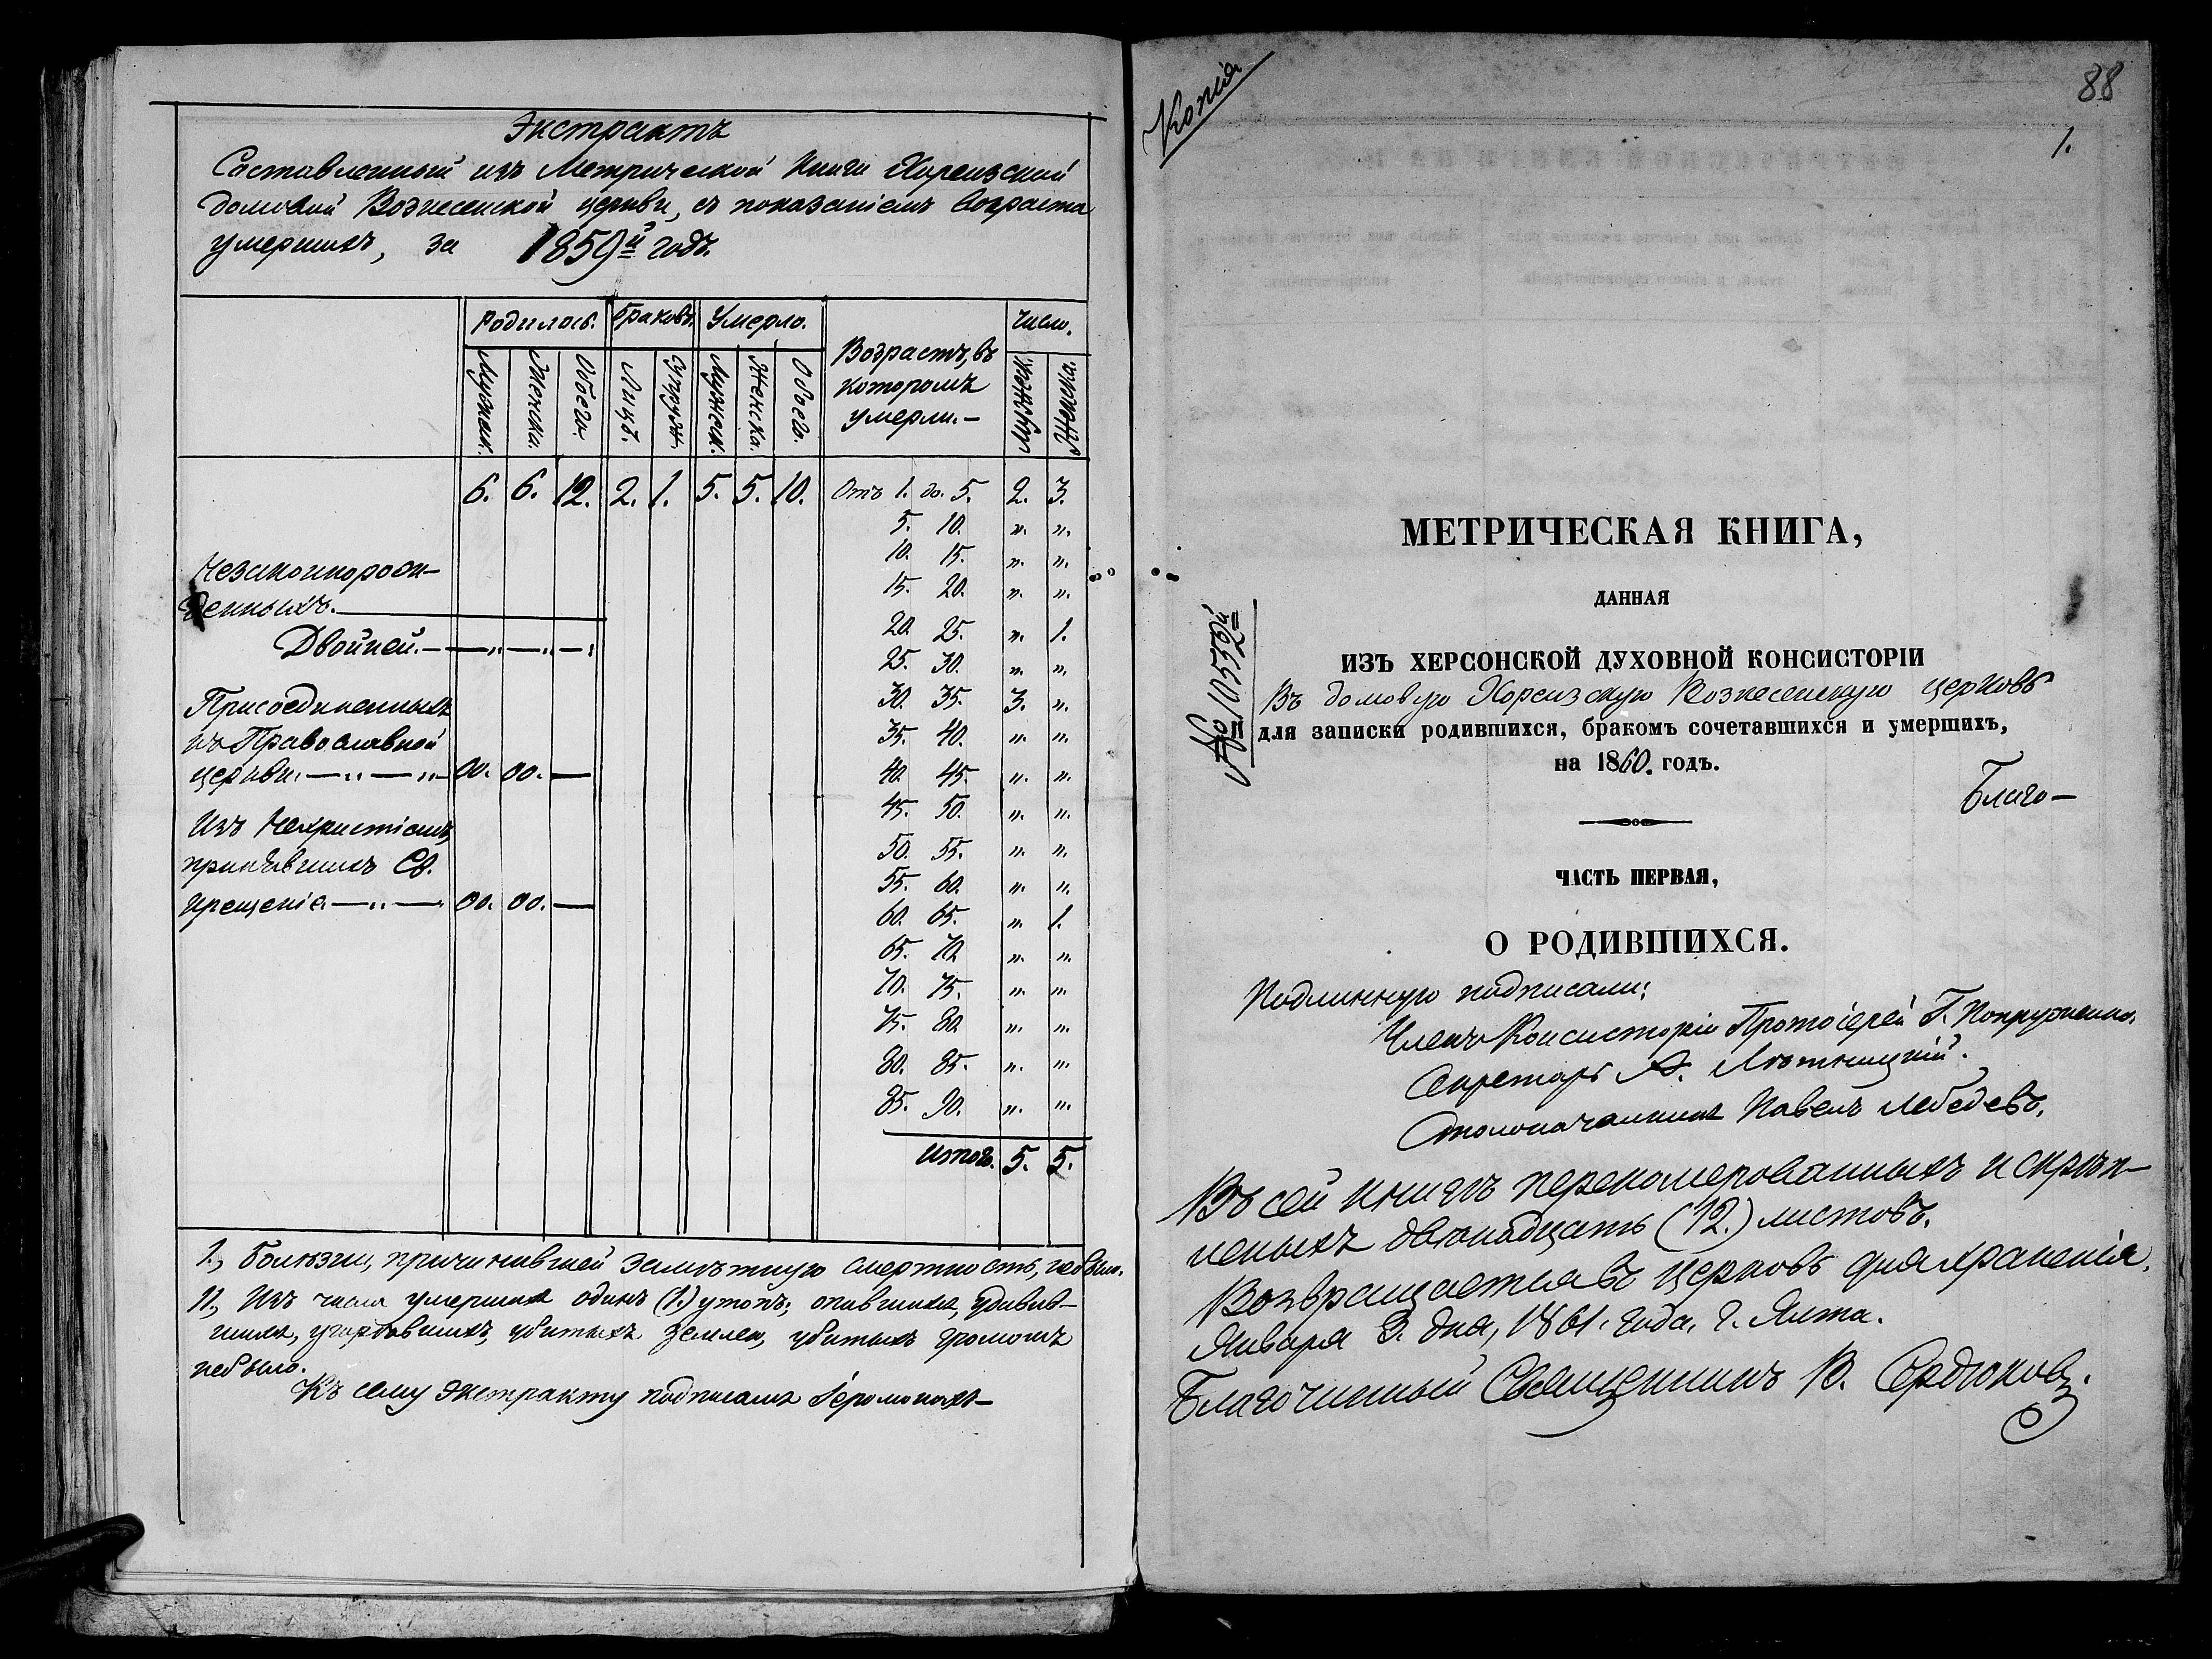 Экстрактъ
Составленный изъ Метрической Книги Хореизской
домовой Вознесенской церкви, съ показаніемъ возраста
умершихъ, за 1859й годъ.
Родилось. Браковъ. Умерло. Возрастъ, въ которомъ умерли.— Число.
Мужск. Женска. Обоего. Лицъ. Супруж. Мужеск. Женска. Обоего. Мужеск. Женска.
6. 6. 12. 2. 1. 5. 5. 10. Отъ 1. до. 5. 2. 3.
5. 10. „. „.
10. 15. „. „.
15. 20. „. „.
20. 25. „. 1.
25. 30. „. „.
30. 35. 3. „.
35. 40. „. „.
40. 45. „. „.
45. 50. „. „.
50. 55. „. „.
55. 60. „. „.
60. 65. „. 1.
65. 70. „. „.
70. 75. „. „.
75. 80. „. „.
80. 85. „. „.
85. 90. „. „.
Итого. 5. 5.
Незаконнорож-
денныхъ.
Двойней.
Присоединенныхъ
къ Православной
церкви. 00. 00. —
Изъ Нехристіанъ,
принявшихъ Св.
Крещеніе 00. 00. —
1., Болѣзни, причинившей замѣтную смертность, небыло.
11., Изъ числа умершихъ одинъ (1.) утопъ; опившихся, удавив-
шихся, угорѣвшихъ, убитыхъ землею, убитыхъ громомъ
небыло.
Къ сему экстракту подписался Іеромонахъ—
Копія
88
1.
МЕТРИЧЕСКАЯ КНИГА,
ДАННАЯ
ИЗЪ ХЕРСОНСКОЙ ДУХОВНОЙ КОНСИСТОРІИ
Въ домовую Хореизскую Вознесенскую церковь
для записки родившихся, бракомъ сочетавшихся и умершихъ,
на 1860. годъ.
№ 10552й
Благо—
ЧАСТЬ ПЕРВАЯ,
О РОДИВШИХСЯ.
Подлинную подписали:
Членъ Консисторіи Протоіерей Г. Попруженко.
Секретарь А. Лѣтницкій.
Столоначальникъ Павелъ Лебедевъ.
Въ сей книгѣ переномерованныхъ и скрѣп-
леныхъ двенадцать (12.) листовъ.
Возвращается въ церковь для храненія.
Января 3. дня, 1861. года, г. Ялта.
Благочинный Священникъ В. Сердюковъ.